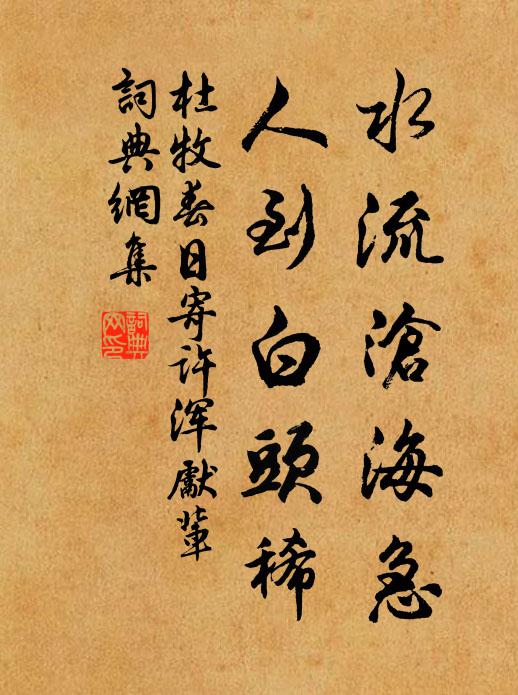 水流滄海急
人到白頭稀
杜牧春日寄许浑獻輩
詞典網集
詞典
网印